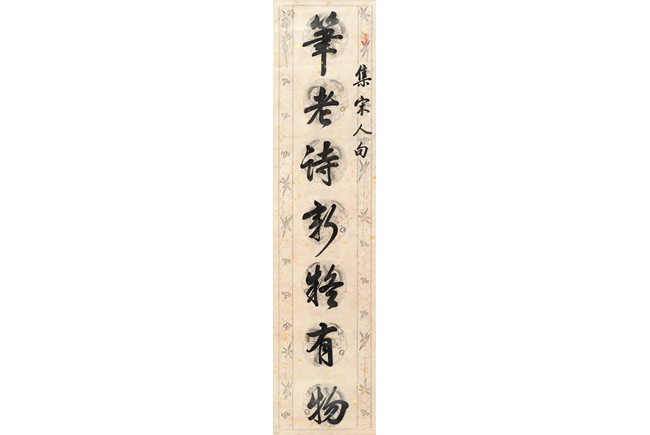 集宋人句
筆老詩新疑有物